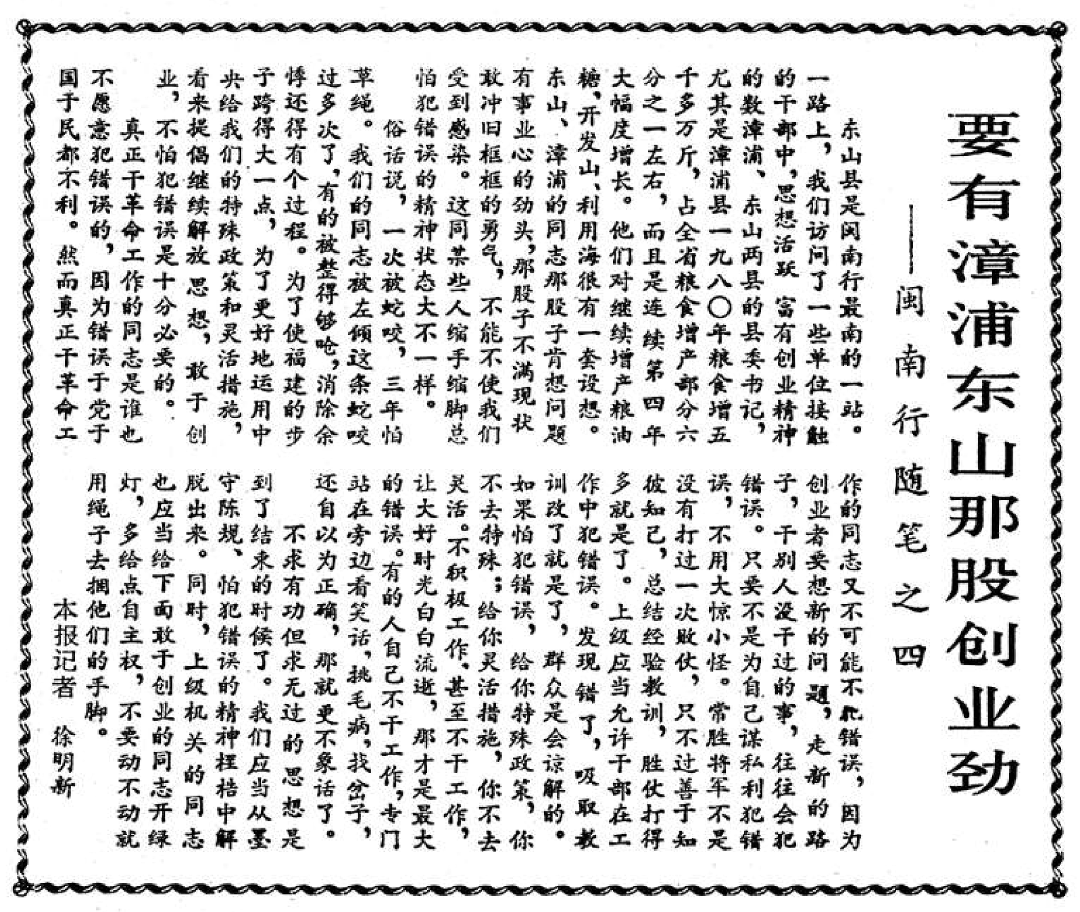 要有漳浦东山那股创业劲
——闽南行随笔之四
东山县是闽南行最南的一站。
一路上，我们访问了一些单位接触
的干部中，思想活跃 富有创业精神
的数漳浦、东山两县的县委书记，
尤其是漳浦县一九八〇年粮食增五
千多万斤，占全省粮食增产部分六
分之一左右，而且是连续第四年
大幅度增长。他们对继续增产粮油
糖、开发山、利用海很有一套设想。
东山、漳浦的同志那股子肯想问题
有事业心的劲头，那股子不满现状
敢冲旧框框的勇气，不能不使我们
受到感染。这同某些人缩手缩脚总
怕犯错误的精神状态大不一样。
俗话说，一次被蛇咬，三年怕
草绳。我们的同志被左倾这条蛇咬
过多次了，有的被整得够呛，消除余
悸还得有个过程。为了使福建的步
子跨得大一点，为了更好地运用中
央给我们的特殊政策和灵活措施，
看来提倡继续解放思想，敢于创
业，不怕犯错误是十分必要的。
真正干革命工作的同志是谁也
不愿意犯错误的，因为错误于党于
国于民都不利。然而真正干革命工
作的同志又不可能不犯错误，因为
创业者要想新的问题，走新的路
子，干别人没干过的事，往往会犯
错误。只要不是为自己谋私利犯错
误，不用大惊小怪。常胜将军不是
没有打过一次败仗，只不过善于知
彼知己，总结经验教训，胜仗打得
多就是了。上级应当允许干部在工
作中犯错误。发现错了，吸取教
训改了就是了，群众是会谅解的。
如果怕犯错误，给你特殊政策，你
不去特殊；给你灵活措施，你不去
灵活。不积极工作、甚至不干工作，
让大好时光白白流逝，那才是最大
的错误。有的人自己不干工作，专门
站在旁边看笑话，挑毛病，找岔子，
还自以为正确，那就更不象话了。
不求有功但求无过的思想是
到了结束的时候了。我们应当从墨
守陈规、怕犯错误的精神桎梏中解
脱出来。同时，上级机关的同志
也应当给下面敢于创业的同志开绿
灯，多给点自主权，不要动不动就
用绳子去捆他们的手脚。
本报记者 徐明新